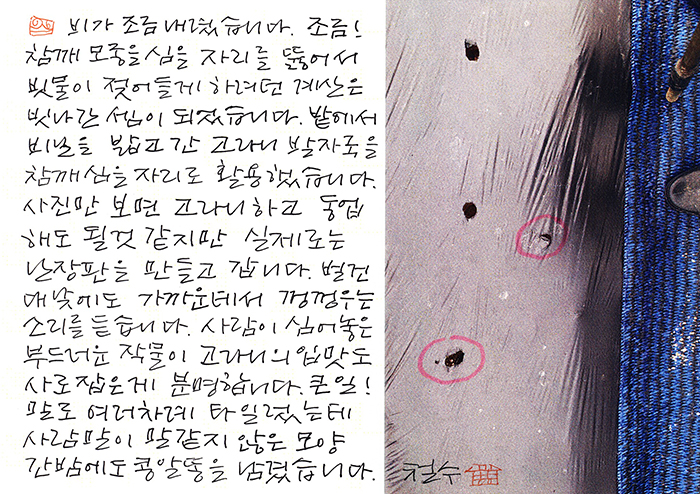 비가 조금 내렸습니다. 조금!
참깨 모종을 심을 자리를 뚫어서
빗물이 젖어들게 하려던 계산은
빗나간 셈이 되었습니다. 밭에서
비닐을 밟고 간 고라니 발자국을
참깨 심을 자리로 활용했습니다.
사진만 보면 고라니하고 동업
해도 될것 같지만 실제로는
난장판을 만들고 갑니다. 벌건
대낮에도 가까운데서 겅겅우는
소리를 듣습니다. 사람이 심어놓은
부드러운 작물이 고라니의 입맛도
사로잡은게 분명합니다. 큰일!
말로 여러차례 타일렀는데
사람말이 말같지 않은 모양
간밤에도 콩알똥을 남겼습니다.
철수